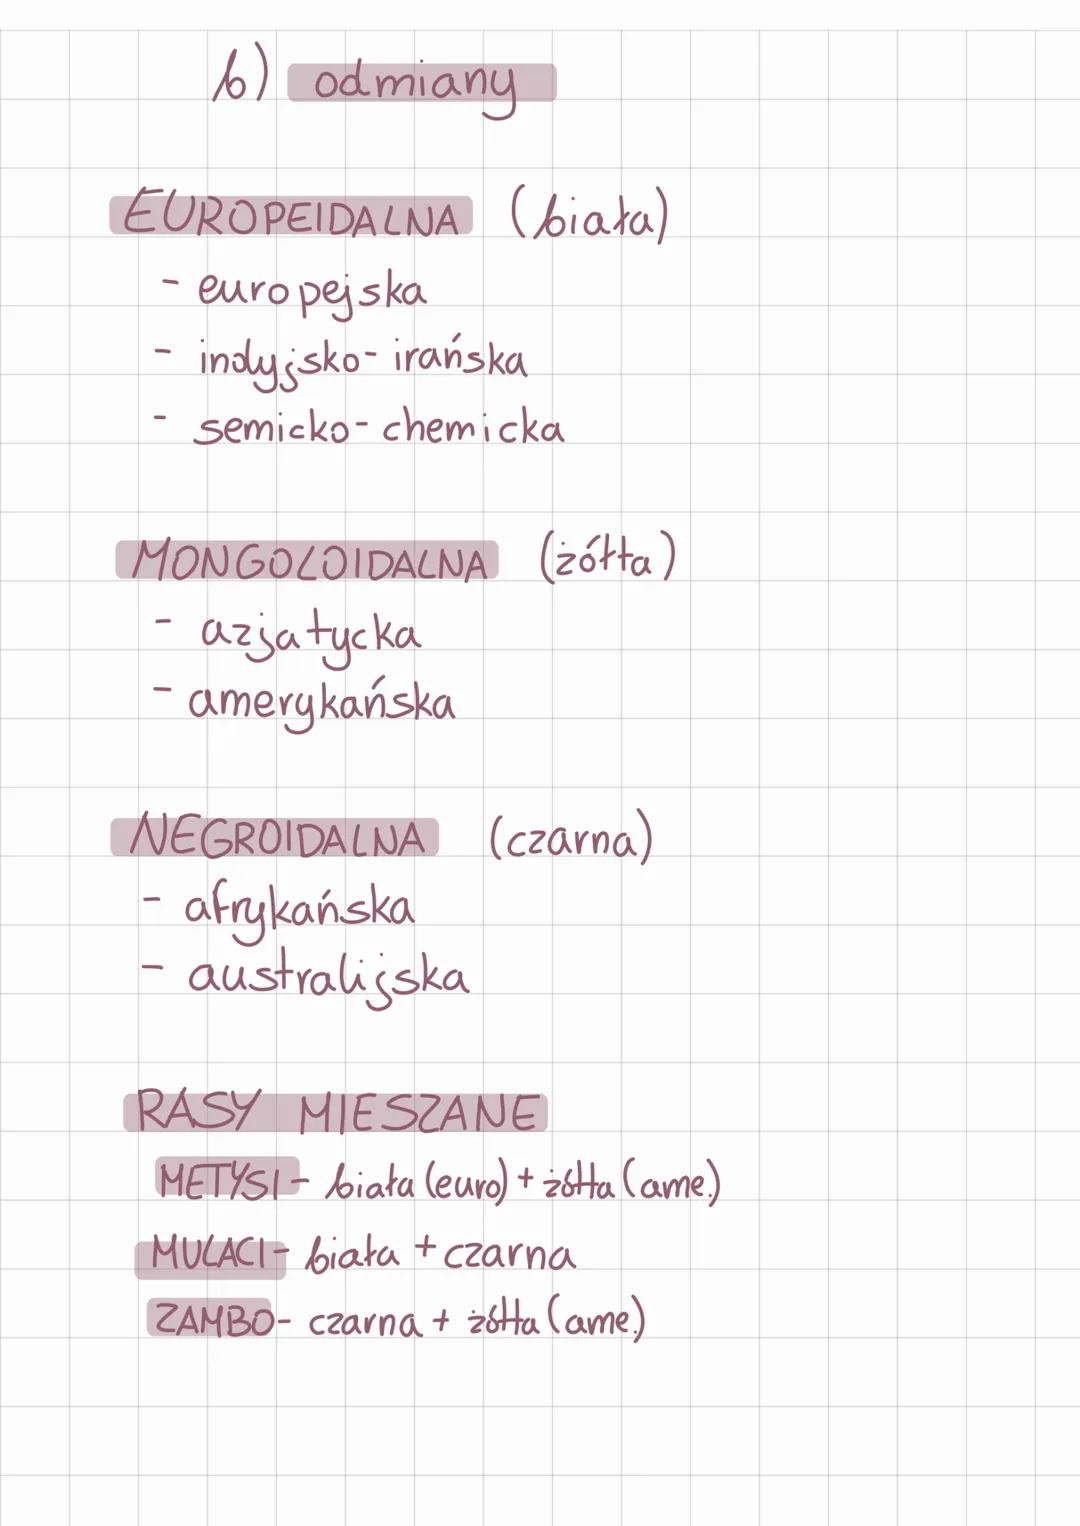 b) odmiany
EUROPEIDALNA (biała)
- europejska
- indyjsko-irańska
- semicko-chemicka
MONGOLOIDALNA (żółta)
- azjatycka
- amerykańska
NEGROIDALNA (czarna)
- afrykańska
- australijska
RASY MIESZANE
METYSI- biała (euro) + żółta (ame.)
MULACI- biała + czarna
ZAMBO- czarna + żółta (ame.)